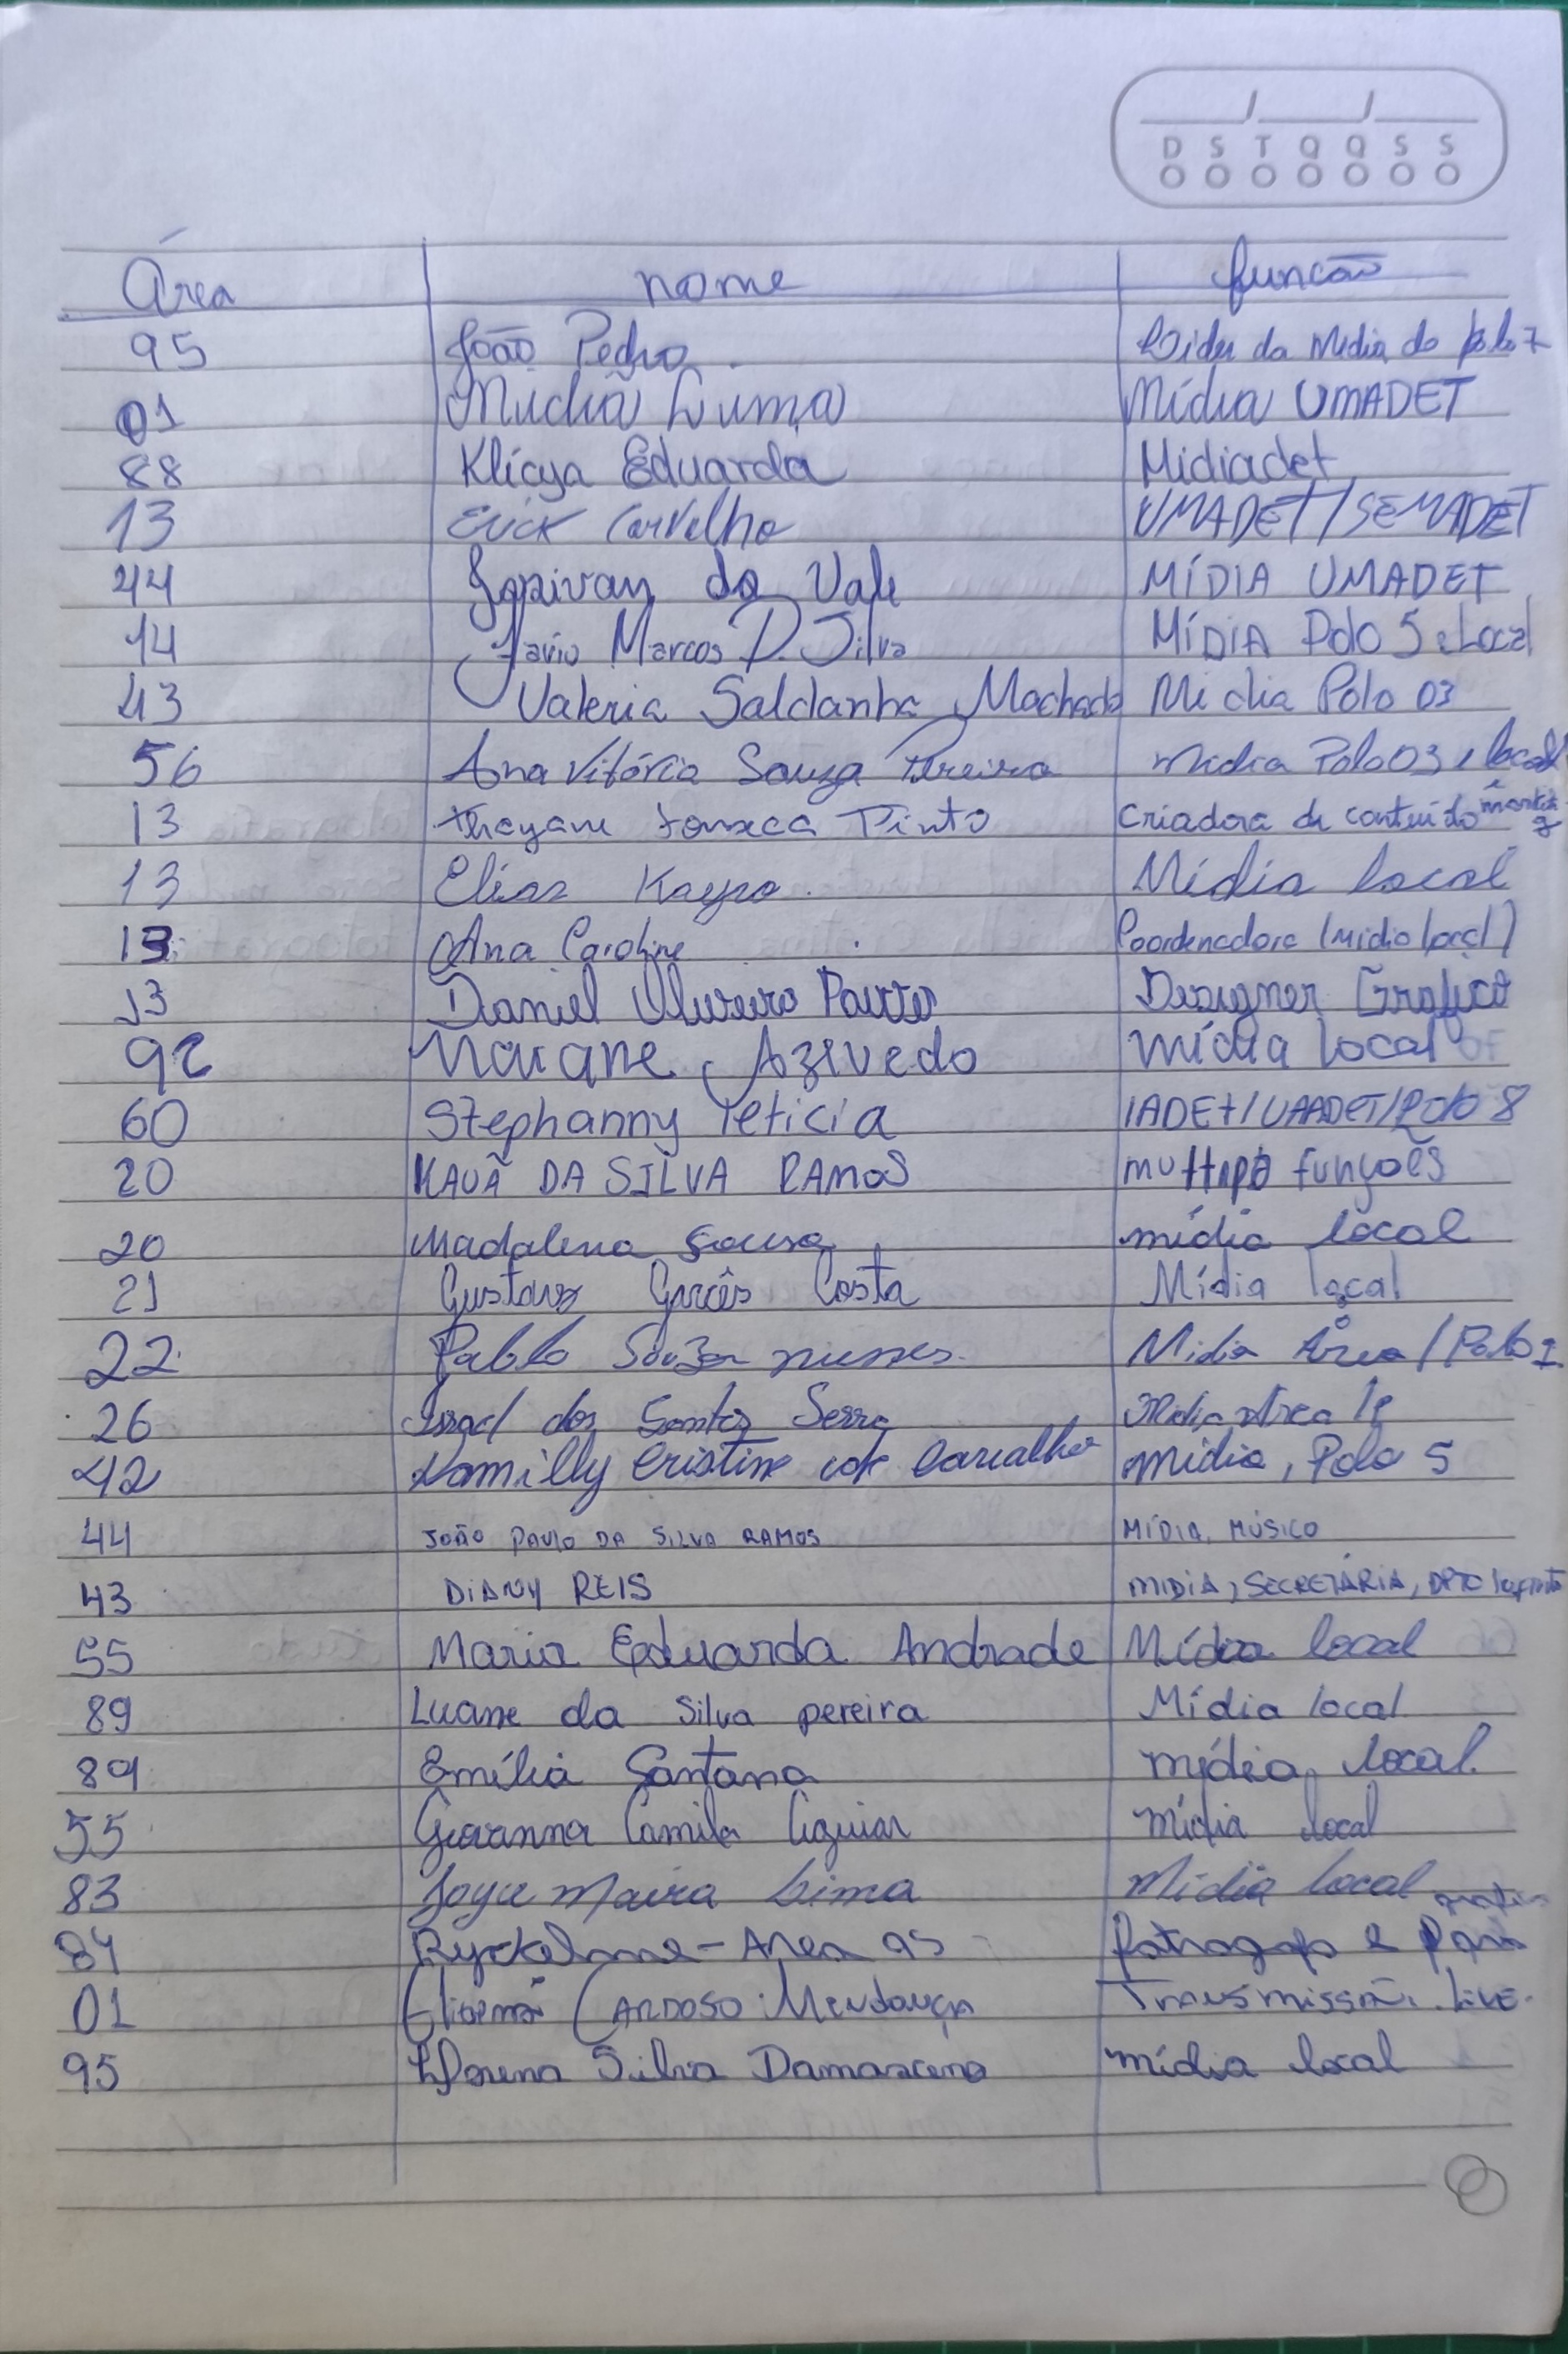 D S T Q Q S S
Área nome função
95 João Pedro Líder da Mídia do polo 7
01 Lima Mídia UMADET
88 Klícya Eduarda Midiadet
13 Erick Carvalho UMADET/SEMADET
44 Josivan do Vale MÍDIA UMADET
14 Marcos D. Silva MÍDIA Polo 5 e Local
43 Valeria Saldanha Machado Midia Polo 03
56 Ana Vitória Souza Pereira midia Polo 03 e local
13 Thayane Fonseca Pinto Criadora de conteúdo
13 Elias Kayro. Mídia local
13 Ana Caroline Coordenadora (mídia local)
13 Daniel Designer Gráfico
92 Naiane Azevedo mídia local
60 Stephanny leticia IADET/UMADET/Polo 8
20 KAUÃ DA SILVA RAMOS funções
20 Madalena Sousa mídia local
21 Gustavo Garcês Costa Mídia local
22 Pablo Souza nunes. Midia Área / Polo 1
26 Israel dos Santos Serra Mídia Area
42 Kamilly Cristine de Carvalho mídia, Polo 5
44 JOÃO PAULO DA SILVA RAMOS MÍDIA, MÚSICO
43 DIANY REIS MIDIA, SECRETÁRIA, DPTO
55 Maria Eduarda Andrade Mídia local
89 Luane da Silva pereira Mídia local
89 Emília Santana mídia local.
55 Giovanna Camila Aguiar mídia local
83 Joyce Maira Lima Mídia local
84 - Area 95 e
01 CARDOSO Mendonça Transmissão. Live.
95 Silva Damasceno mídia local